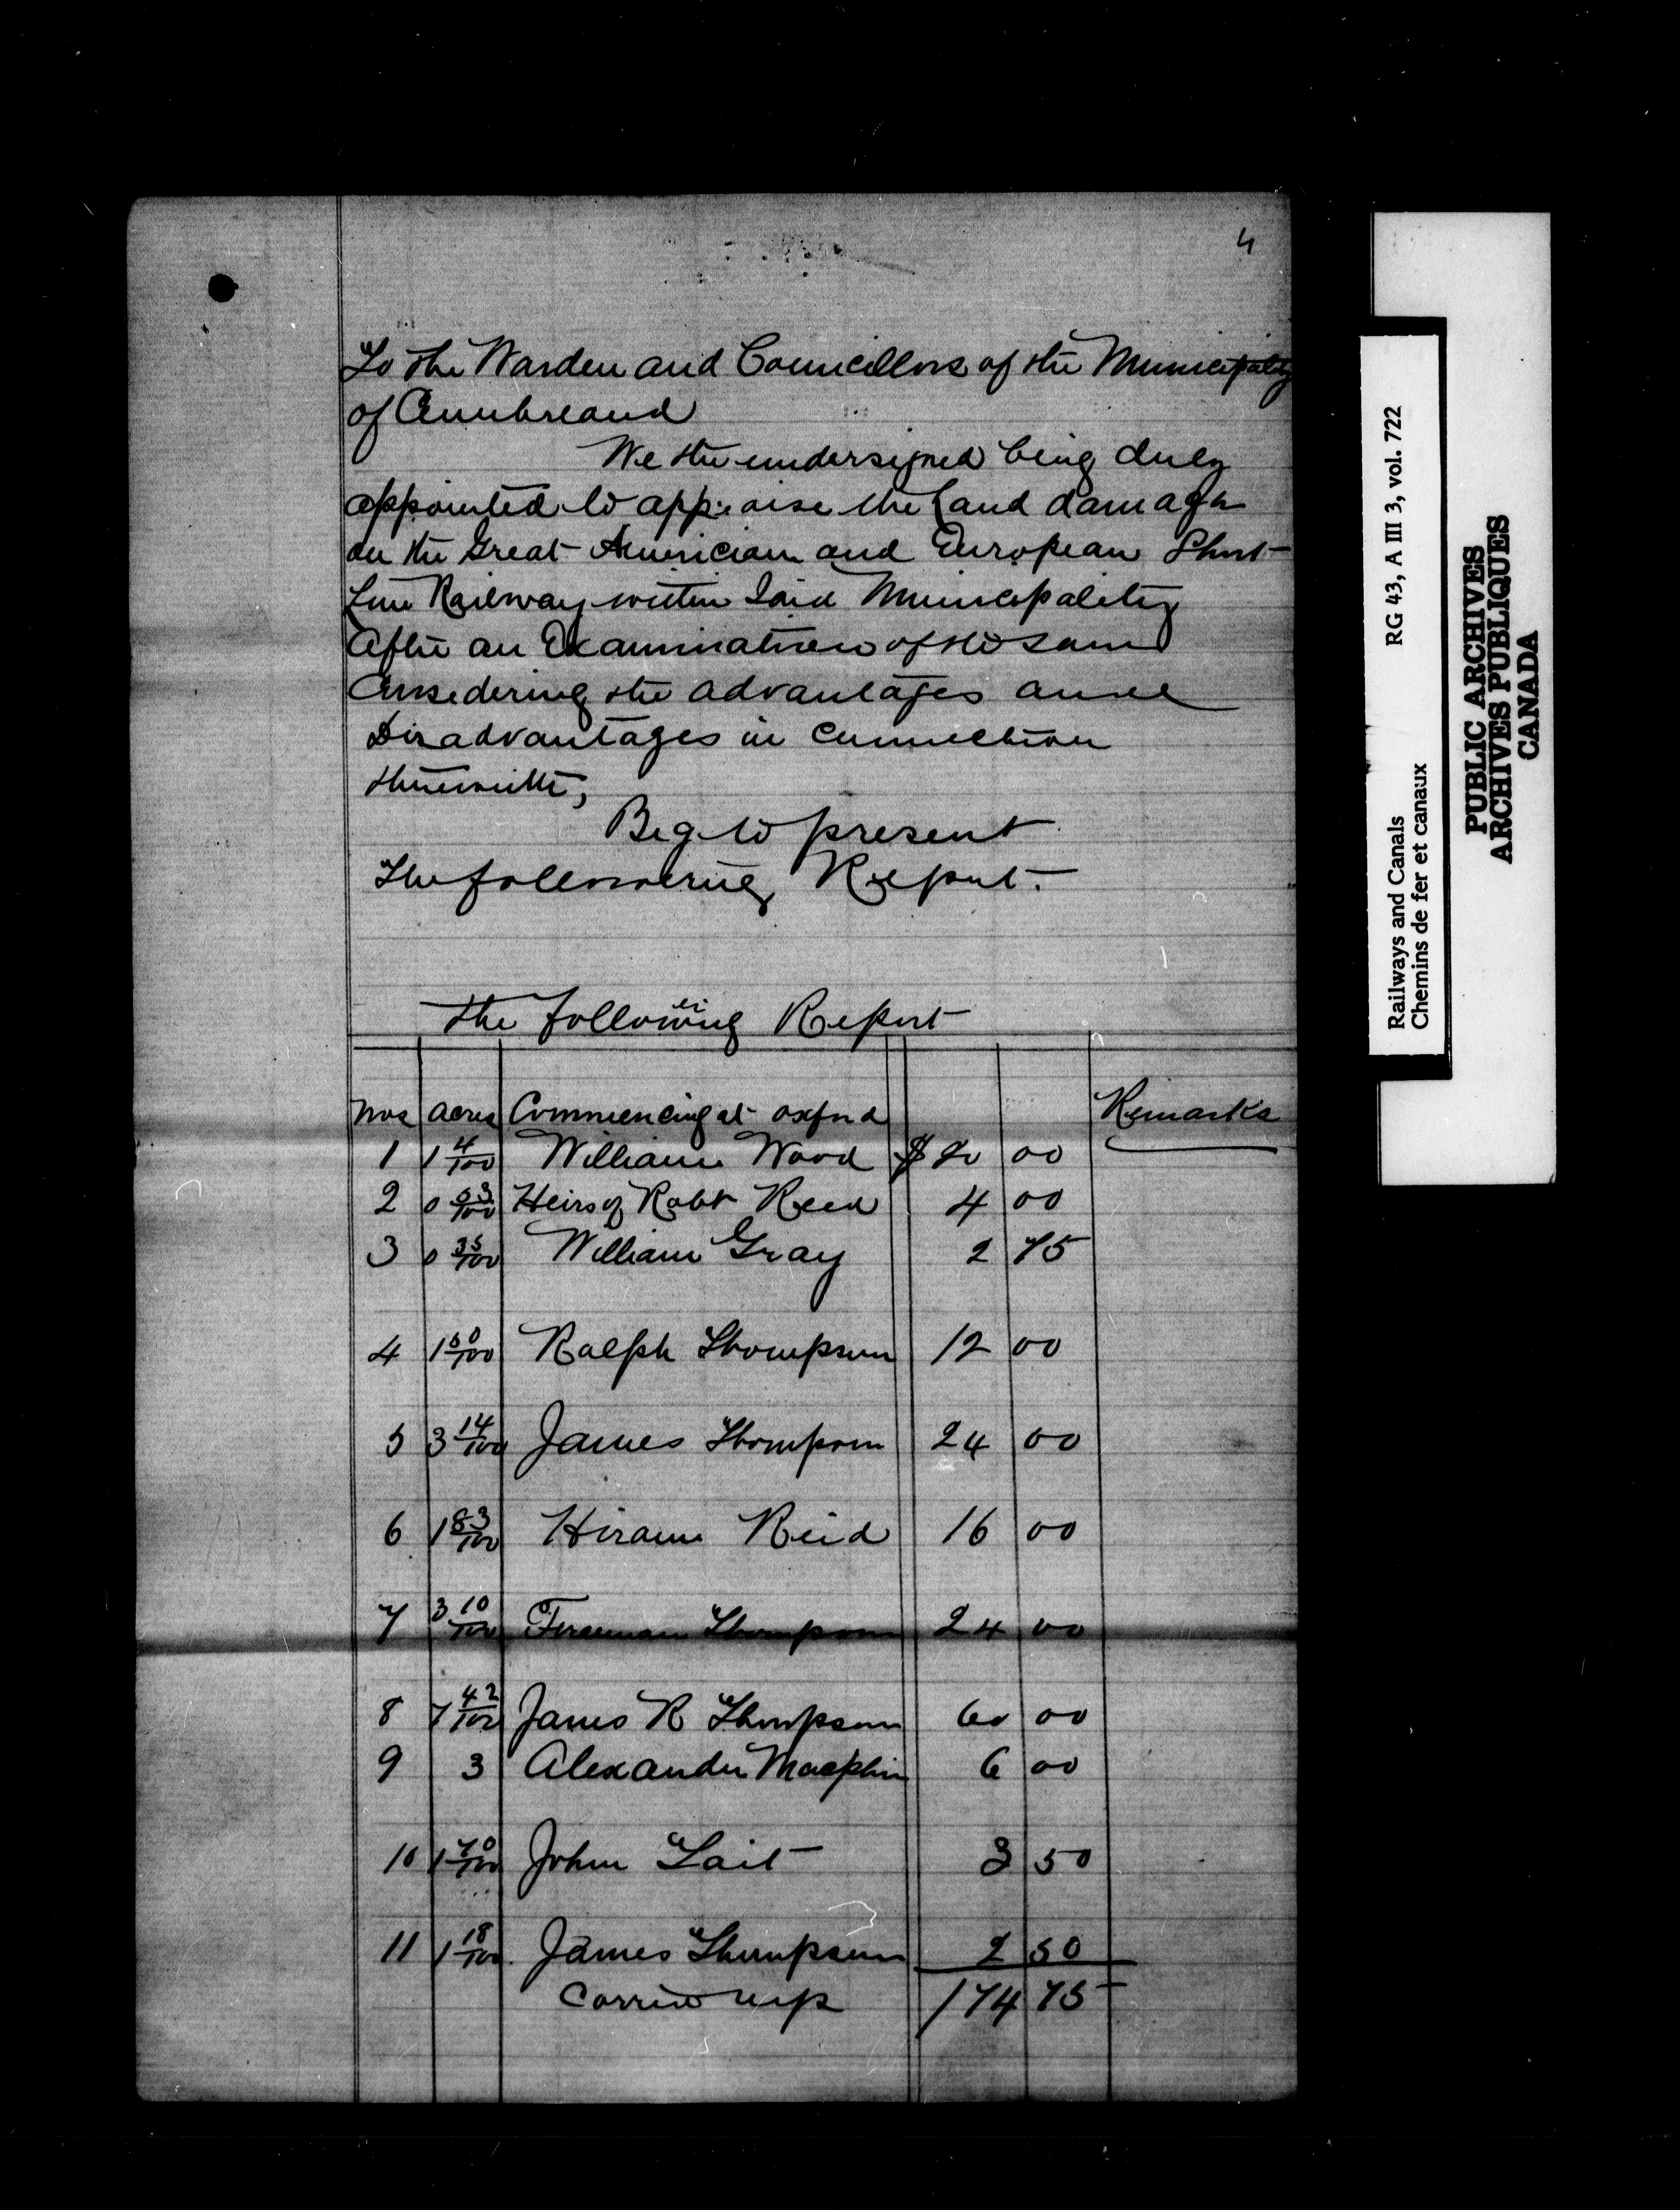 4
To the Warden and Councillors of the Municipality
of Cumbreland
We the undersigned being duly
appointed to appraise the Land damage
on the Great American and European Short
Line Railway within Said Municipality
After an Examination of the same
Considering the advantages and
Disadvantages in connection
therewith,
Beg to present
The following Report.
the following Report
Nos Acres Commencing at oxford Remarks
1 1 4/100 William Wood $ 20 00
2 0 63/100 Heirs of Robt Reed 4 00
3 0 35/100 William Gray 2 75
4 1 50/100 Ralph Thompson 12 00
5 3 14/100 James Thompson 24 00
6 1 83/100 Hiram Reid 16 00
7 3 10/100 Freeman Thompson 24 00
8 7 42/100 James R Thompson 60 00
9 3 Alexander 6 00
10 1 70/100 John Tait 3 50
11 1 18/100 James Thompson 2 50
Carried up 174 75
Railways and Canals RG 43, A III 3, vol. 722
Chemins de fer et canaux
PUBLIC ARCHIVES
ARCHIVES PUBLIQUES
CANADA